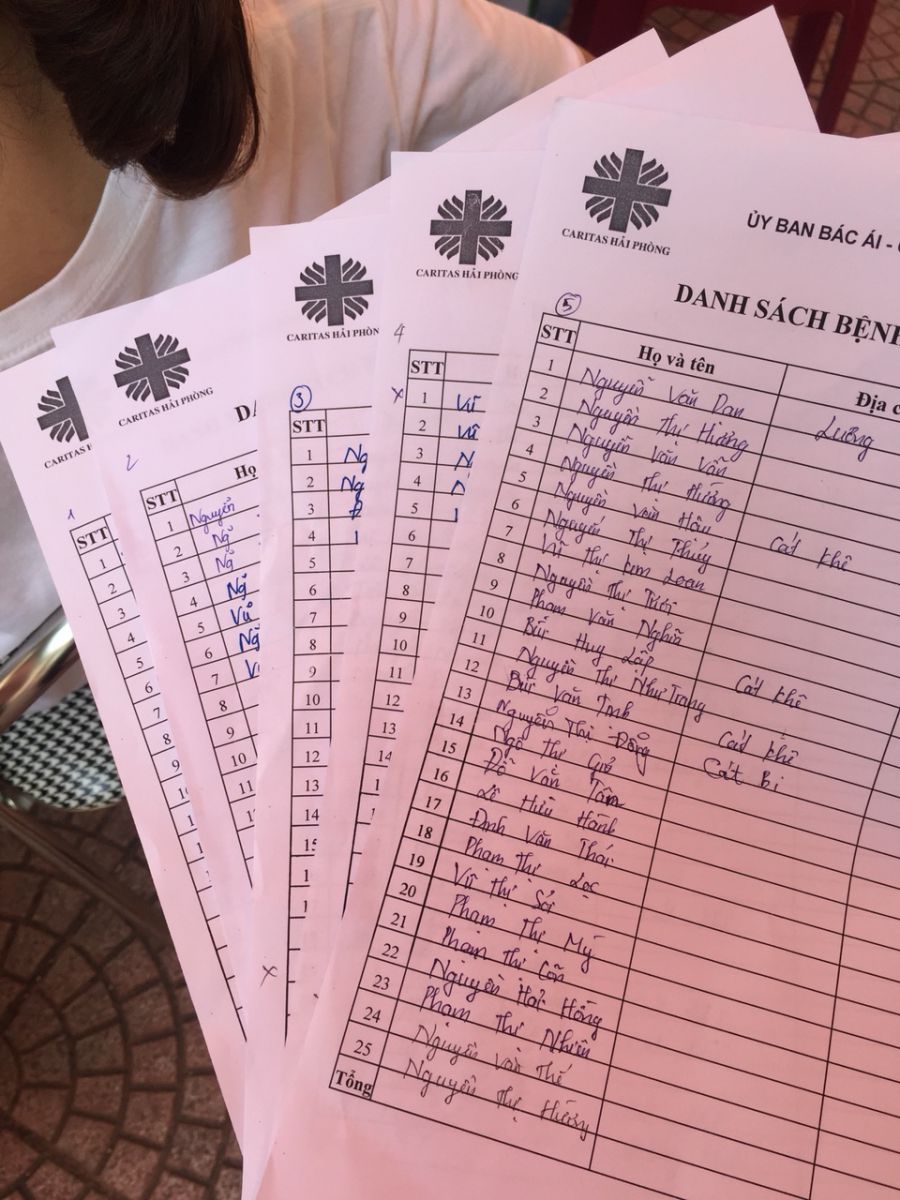 CARITAS HẢI PHÒNG
1
STT
1
2
3
4
5
6
7
8
9
CARITAS HẢI PHÒNG
2
STT Họ
1 Nguyễn
2
3
4 Ng
5 Vũ
6 Ng
7
8
9
10
11
CARITAS HẢI PHÒNG
3
STT
1 Ng
2 Ng
3
4
5
6
7
8
9
10
11
12
13
14
CARITAS HẢI PHÒNG
4
STT
x
1 Vũ
2 Vũ
3 N
4
5
6
7
8
9
10
11
12
13
14
x
CARITAS HẢI PHÒNG
ỦY BAN BÁC ÁI -
DANH SÁCH BỆNH
5
STT Họ và tên Địa c
1 Nguyễn Văn Dan Lương
2 Nguyễn Thị Hường
3 Nguyễn Văn Vấn
4 Nguyễn Thị Hường
5 Nguyễn Văn Hậu Cát Khê
6 Nguyễn Thị Thúy
7 Vũ Thị Kim Loan
8 Nguyễn Thị
9 Phạm Văn Nghĩa
10 Bùi Huy Lập Cát khê
11 Nguyễn Thị Như Trang
12 Bùi Văn Tình Cát khê
13 Nguyễn Thị Đông Cát Bi
14 Ngô Thị
15 Đỗ Văn Tấn
16 Lê Hữu Hành
17 Đinh Văn Thái
18 Phạm Thị Lọc
19 Vũ Thị
20 Phạm Thị Mỹ
21 Phạm Thị
22 Nguyễn Hải Hồng
23 Phạm Thị Nhiên
24 Nguyễn Văn Thế
25 Nguyễn Thị Hương
Tổng